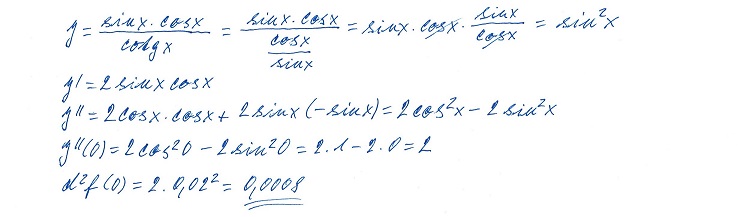 y = \frac{sinx · cosx}{cotgx} = \frac{sinx · cosx}{\frac{cosx}{sinx}} = sinx · cosx · \frac{sinx}{cosx} = sin²x
y' = 2 sinx cosx
y'' = 2cosx · cosx + 2 sinx (-sinx) = 2cos²x - 2 sin²x
y''(0) = 2cos²0 - 2 sin²0 = 2.1 - 2.0 = 2
d²f(0) = 2 . 0,02² = 0,0008